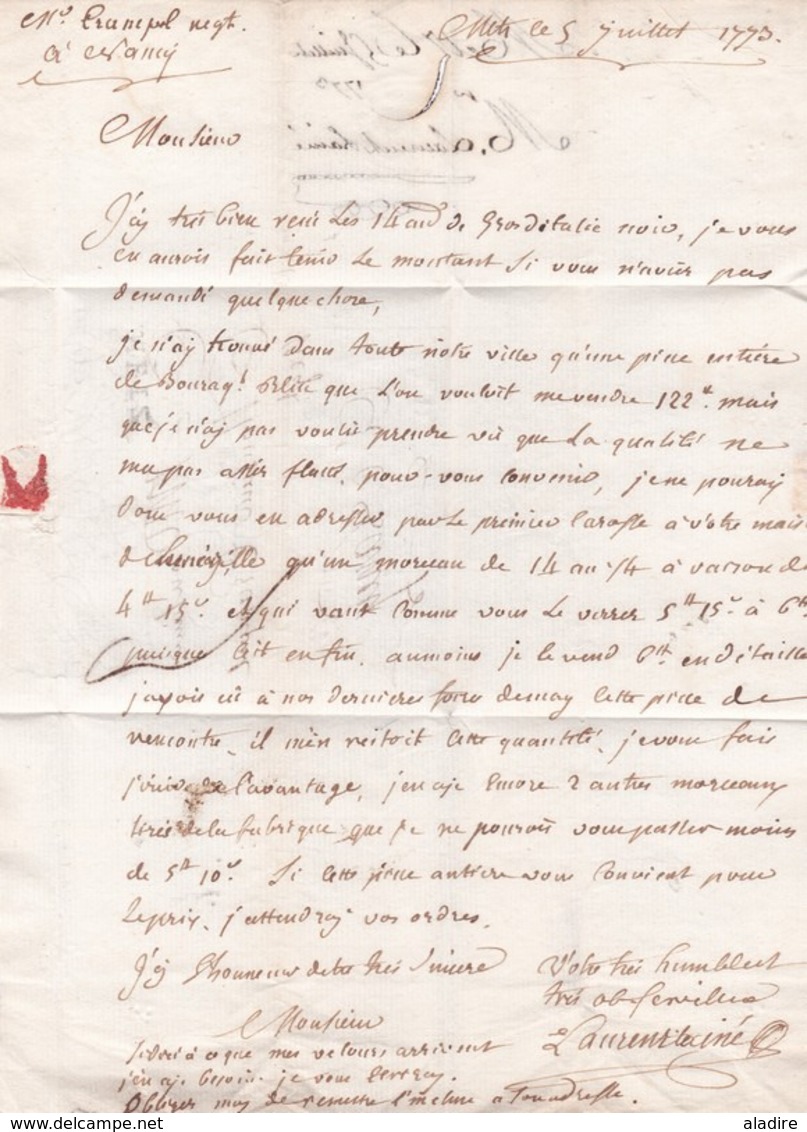 Mr. negt. Metz le 5 Juillet 1773.
à Nancy
Monsieur
J'ay très bien reçu Les 14 au de Gros ditalie noir, je vous
en aurois fait tenir Le montant Si vous n'aviez pas
demandé quelque chose,
je n'ay trouvé dans toute notre ville qu'une piece entière
de que L'on vouloit me vendre 122 mais
que je n'ay pas voulu prendre vu que La qualité ne
pas assez pour vous convenir, je ne pouray
donc vous en adresser par Le premier Carosse à votre
de qu'un morceau de 14 au 1/4 à raison de
4 15 et qui vaut Comme vous Le verrez 5 15 à 6
au moins je le vend 6 en détaille
j'avois à nos dernieres foire de may Cette piece de
rencontre, il m'en restoit Cette quantité, je vous fais
de L'avantage, Encore 2 autres morceaux
tirés de la fabrique que je ne pourois vous passer moins
de 5 10 Si Cette piece antiere vous Convient pour
Le prix, j'attendray vos ordres.
J'ay L'honneur Votre très humble et
très
Monsieur Laurent lainé
que mes velours arrivent
besoin je vous
moy de remettre à